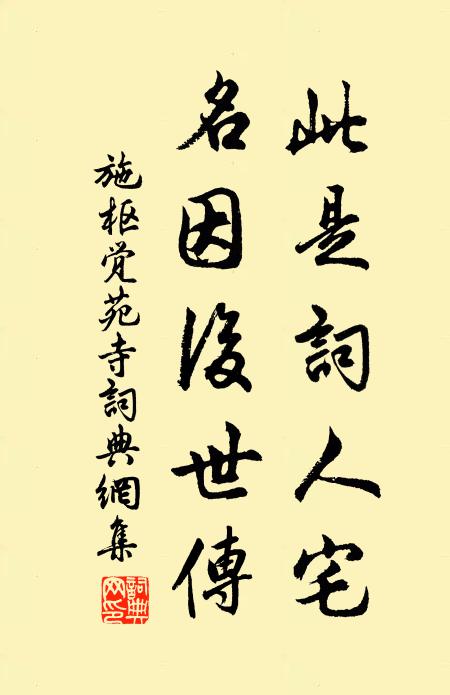 此是詞人宅
名因後世傳
施枢觉苑寺詞典網集
詞典網印